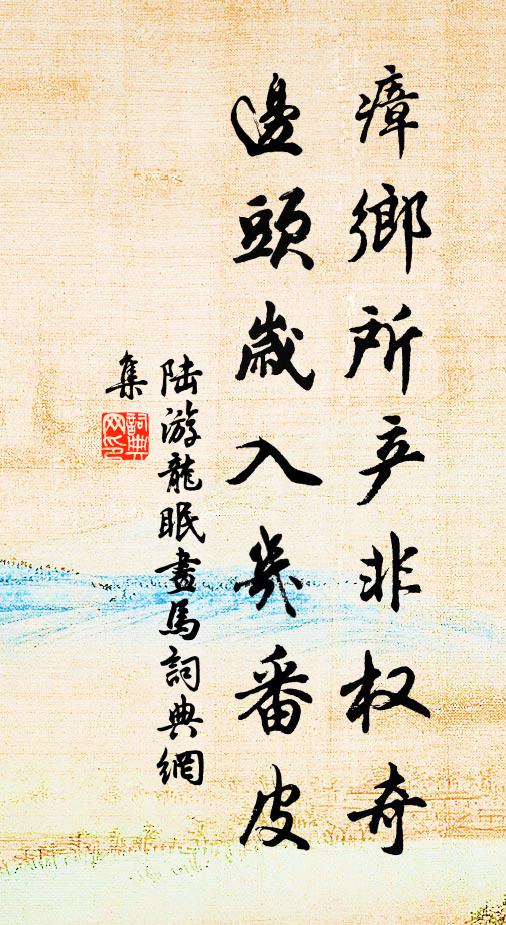 瘴鄉所产非权奇
邊頭歲入幾番皮
陆游龍眠畫馬詞典網
集
詞典网印